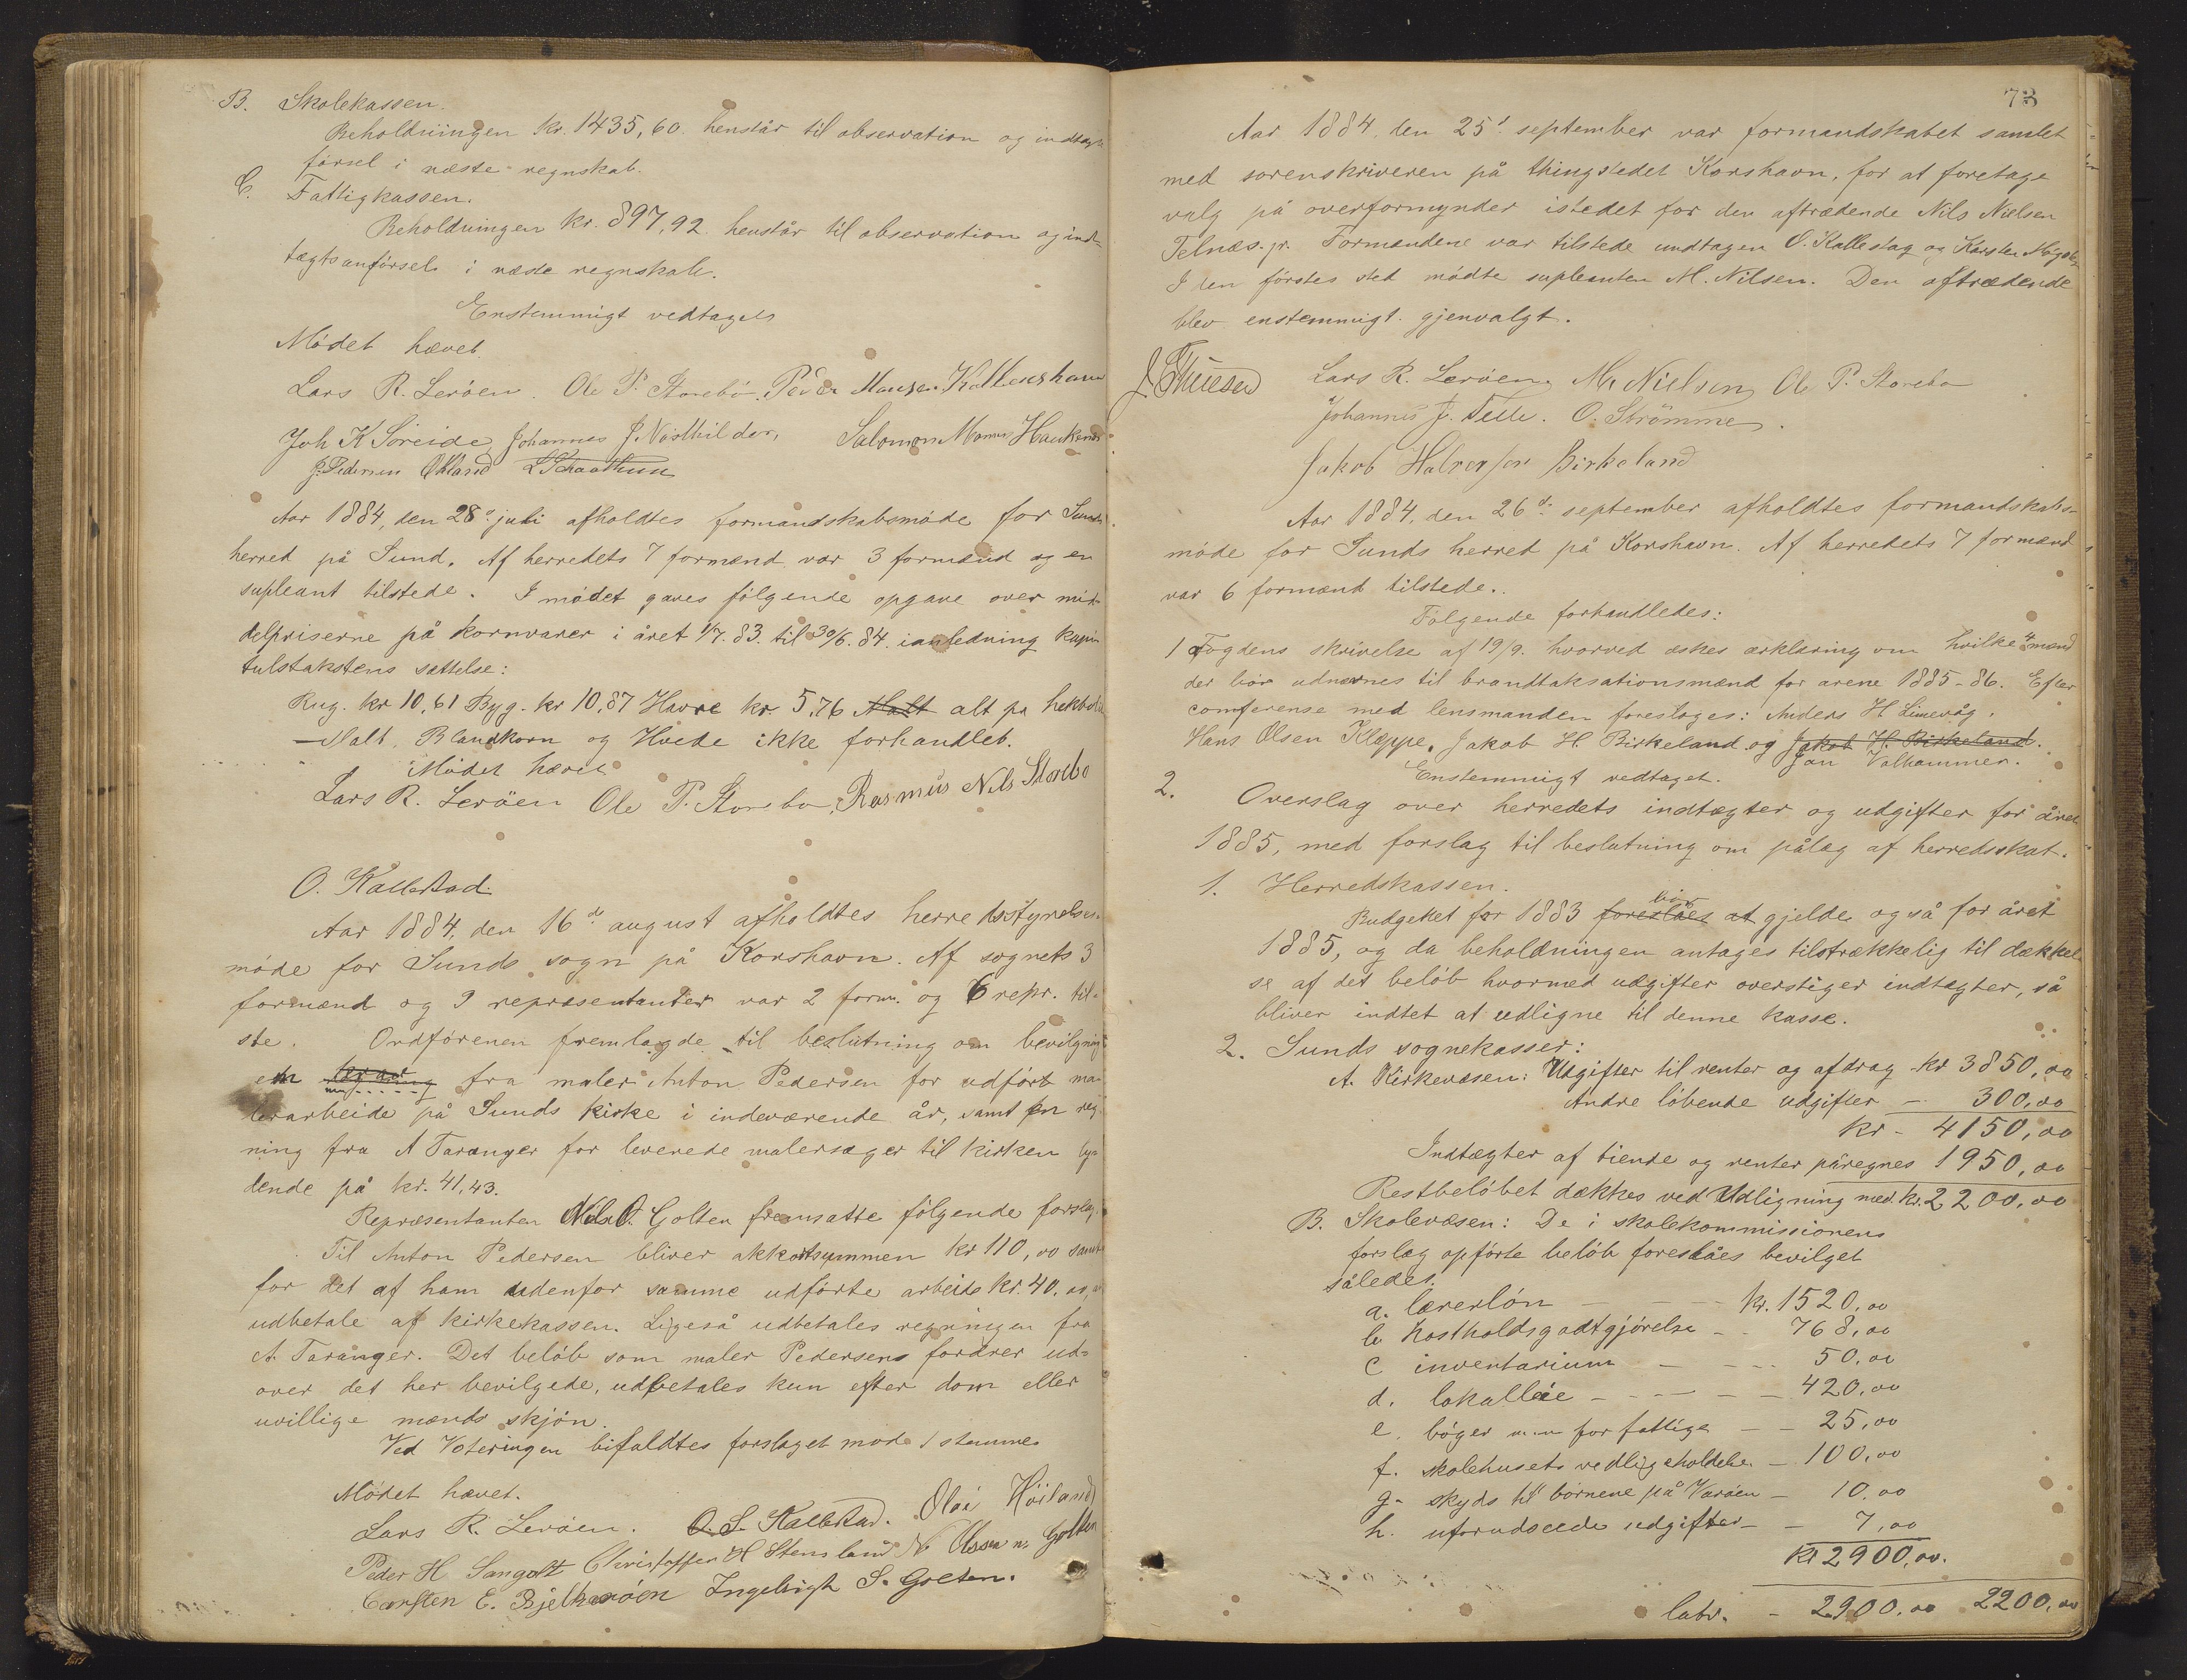 B. Skolekassen.
Beholdningen kr. 1435,60. henstår til observation og indtægts
førsel i næste regnskab.
C. Fattigkassen.
Beholdningen kr. 897,92 henstår til observation og ind-
tægtsanførsel i næste regnskab.
Enstemmigt vedtaget
Mødet hævet.
Lars R. Lerøen. Ole P. Storebø. Peder Hansen Kallenshavn
Joh K Søreide Johannes J. Nøsthilder, Salomon Monsen Haukenes
J. Pedersen Økland
Aar 1884, den 28d juli afholdtes formandskabsmøde for Sunds
herred på Sund. Af herredets 7 formænd var 3 formænd og en
supleant tilstede. I mødet gaves følgende opgave over mid-
delpriserne på kornvarer i året 1/7. 83. til 30/6. 84. ianledning kapi
tulstakstens sættelse:
Rug. kr 10,61 Byg. kr 10,87 Havre kr. 5,76 Malt alt pr hektoli
— Malt, Blandkorn og Hvede ikke forhandlet.
Mødet hævet
Lars R. Lerøen Ole P. Storebø, Rasmus Nils Storebø
O. Kallestad.
Aar 1884, den 16de august afholdtes herredsstyrelses-
møde for Sunds sogn på Korshavn. Af sognets 3
formænd og 9 repræsentanter var 2 form. og 6 repr. til-
ste. Ordføreren fremlagde til beslutning om bevilgning
en fra maler Anton Pedersen for udført ma-
lerarbeide på Sunds kirke i indeværende år, samt en reg-
ning fra A Taranger for leverede malersager til kirken ly-
dende på kr. 41,43.
Repræsentanten Nils O. Golten fremsatte følgende forslag:
Til Anton Pedersen bliver akkordsummen kr 110,00 samt
for det af ham udenfor samme udførte arbeide kr. 40.00, at
udbetale af kirkekassen. Ligeså udbetales regningen fra
A. Taranger. Det beløb som maler Pedersens fordrer ud-
over det her bevilgede, udbetales kun efter dom eller
uvillige mænds skjøn.
Ved Voteringen bifaldtes forslaget mod 1 stemme
Mødet hævet.
Lars R. Lerøen. O. S. Kallestad. Olai Høiland
Peder H Sangolt Christoffer H Stensland N Olssen n. Golten
Carsten E. Bjelkarøen Ingebrigt S. Golten.
73
Aar 1884, den 25d september var formandskabet samlet
med sorenskriveren på thingstedet Korshavn, for at foretage
valg på overformynder istedet for den aftrædende Nils Nielsen
Telnæs. jr. Formændene var tilstede undtagen O. Kallestag og Karsten Møgster
I den førstes sted mødte supleanten M. Nilsen. Den aftrædende
blev enstemmigt gjenvalgt.
J. Thuesen Lars R. Lerøen, M. Nielsen, Ole P. Storebø
Johannes J. Telle. O. Strømme.
Jakob Halvorsen Birkeland
Aar 1884, den 26d: september afholdtes formandskabs-
møde for Sunds herred på Korshavn. Af herredets 7 formænd
var 6 formænd tilstede.
Følgende forhandledes:
1 Fogdens skrivelse af 19/9. hvorved æskes erklæring om hvilke 4 mænd
der bør udnævnes til brandtaksationsmænd for årene 1885-86. Efter
comferense med lensmanden foreslages: Anders H Limevåg,
Hans Olsen Kleppe, Jakob H. Birkeland og Jakob H. Birkeland.
Jan Valhammer.
Enstemmigt vedtaget.
2. Overslag over herredets indtægter og udgifter for året
1885, med forslag til beslutning om pålæg af herredsskat.
1. Herredskassen.
bør
Budgettet for 1883 foreslåes at gjelde også for året
1885, og da beholdningen antages tilstrækkelig til dækkel
se af det beløb hvormed udgifter overstiger indtægter, så
bliver indtet at udligne til denne kasse.
2. Sunds sognekasser:
A. Kirkevæsen: Udgifter til renter og afdrag kr 3850,00
Andre løbende udgifter — 300,00
kr - 4150,00
Indtægter af tiende og renter påregnes 1950,00
Restbeløbet dækkes ved Udligning med kr. 2200,00
B. Skolevæsen: De i skolekommissionens
forslag opførte beløb foreslåes bevilget
således.
a. lærerløn — — kr. 1520,00
b kostholdsgodtgjørelse - - 768,00
c inventarium — — 50,00
d. lokalleie — — — 420,00
e. bøger m.m for fattige — — 25,00
f. skolehusets vedligeholdelse — 100,00
g. skyds til børnene på Varøen — 10,00
h. uforudseede udgifter — — 7,00
kr 2900,00.
latr. - 2900,00 2200,00